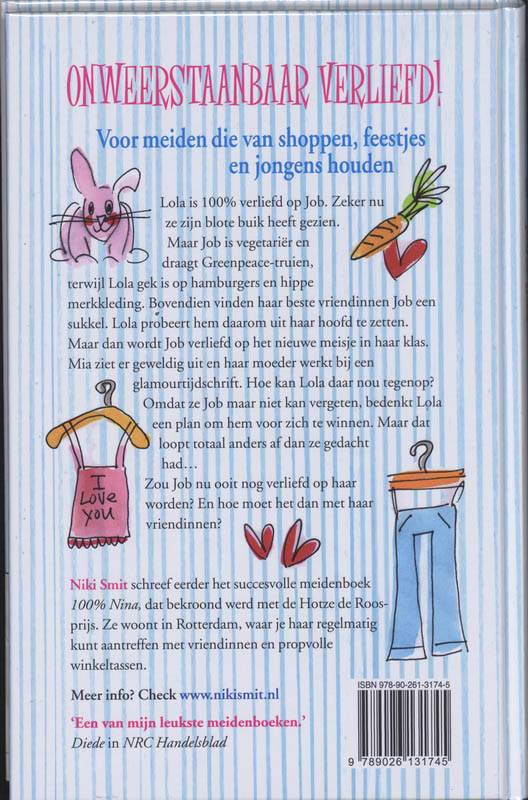 ONWEERSTAANBAAR VERLIEFD!
Voor meiden die van shoppen, feestjes
en jongens houden
Lola is 100% verliefd op Job. Zeker nu
ze zijn blote buik heeft gezien.
Maar Job is vegetariër en
draagt Greenpeace-truien,
terwijl Lola gek is op hamburgers en hippe
merkkleding. Bovendien vinden haar beste vriendinnen Job een
sukkel. Lola probeert hem daarom uit haar hoofd te zetten.
Maar dan wordt Job verliefd op het nieuwe meisje in haar klas.
Mia ziet er geweldig uit en haar moeder werkt bij een
glamourtijdschrift. Hoe kan Lola daar nou tegenop?
Omdat ze Job maar niet kan vergeten, bedenkt Lola
een plan om hem voor zich te winnen. Maar dat
loopt totaal anders af dan ze gedacht
had…
Zou Job nu ooit nog verliefd op haar
worden? En hoe moet het dan met haar
vriendinnen?
I
Love
you
Niki Smit schreef eerder het succesvolle meidenboek
100% Nina, dat bekroond werd met de Hotze de Roos-
prijs. Ze woont in Rotterdam, waar je haar regelmatig
kunt aantreffen met vriendinnen en propvolle
winkeltassen.
Meer info? Check www.nikismit.nl
'Een van mijn leukste meidenboeken.'
Diede in NRC Handelsblad
ISBN 978-90-261-3174-5
9 789026 131745